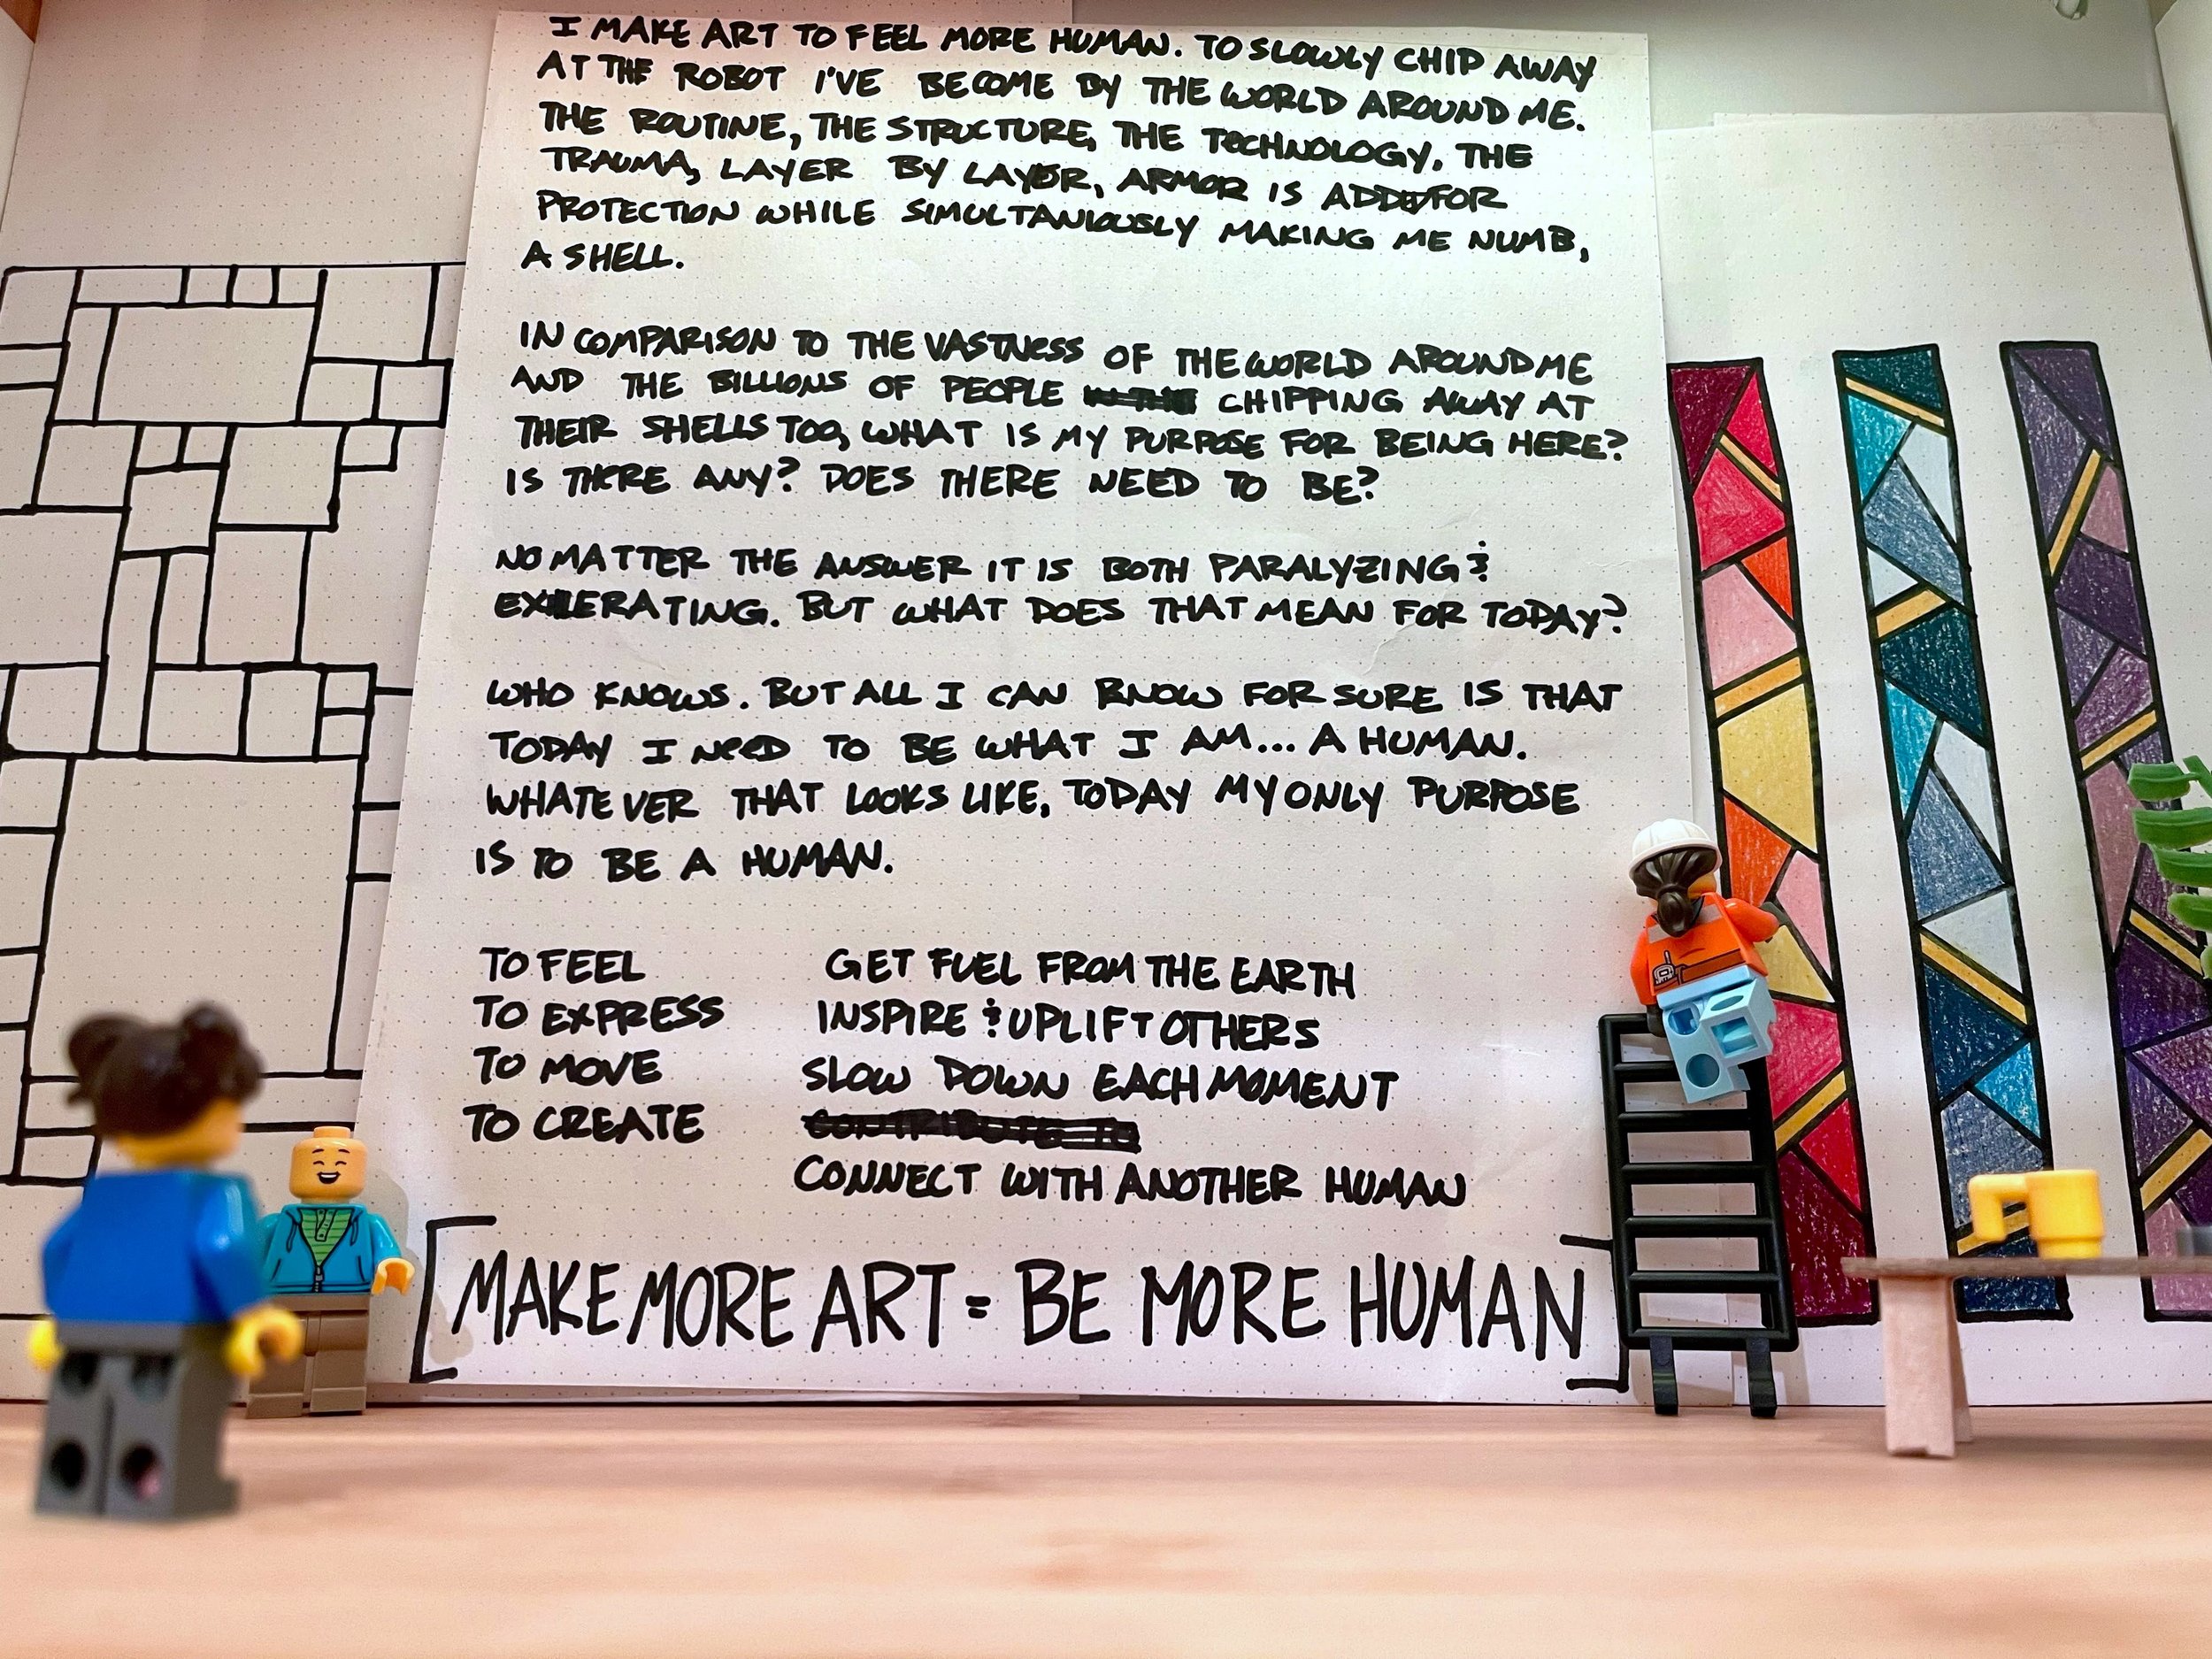 I MAKE ART TO FEEL MORE HUMAN. TO SLOWLY CHIP AWAY
AT THE ROBOT I'VE BECOME BY THE WORLD AROUND ME.
THE ROUTINE, THE STRUCTURE, THE TECHNOLOGY. THE
TRAUMA, LAYER BY LAYER, ARMOR IS ADDED FOR
PROTECTION WHILE SIMULTANIOUSLY MAKING ME NUMB,
A SHELL.
IN COMPARISON TO THE VASTNESS OF THE WORLD AROUND ME
AND THE BILLIONS OF PEOPLE CHIPPING AWAY AT
THEIR SHELLS TOO, WHAT IS MY PURPOSE FOR BEING HERE?
IS THERE ANY? DOES THERE NEED TO BE?
NO MATTER THE ANSWER IT IS BOTH PARALYZING &
EXILERATING. BUT WHAT DOES THAT MEAN FOR TODAY?
WHO KNOWS. BUT ALL I CAN KNOW FOR SURE IS THAT
TODAY I NEED TO BE WHAT I AM... A HUMAN.
WHATEVER THAT LOOKS LIKE, TODAY MY ONLY PURPOSE
IS TO BE A HUMAN.
TO FEEL
TO EXPRESS
TO MOVE
TO CREATE
GET FUEL FROM THE EARTH
INSPIRE & UPLIFT OTHERS
SLOW DOWN EACH MOMENT
CONTRIBUTE TO
CONNECT WITH ANOTHER HUMAN
[MAKE MORE ART = BE MORE HUMAN]